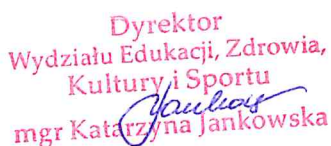 Dyrektor
Wydziału Edukacji, Zdrowia,
Kultury i Sportu
mgr Katarzyna Jankowska